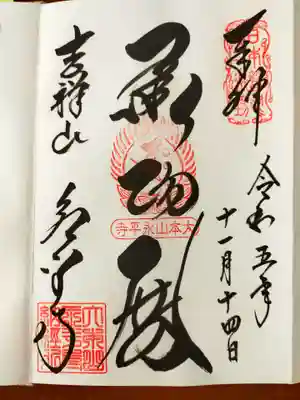 奉拝
令和五年
十一月十四日
承陽殿
大本山永平寺
吉祥山
永平寺